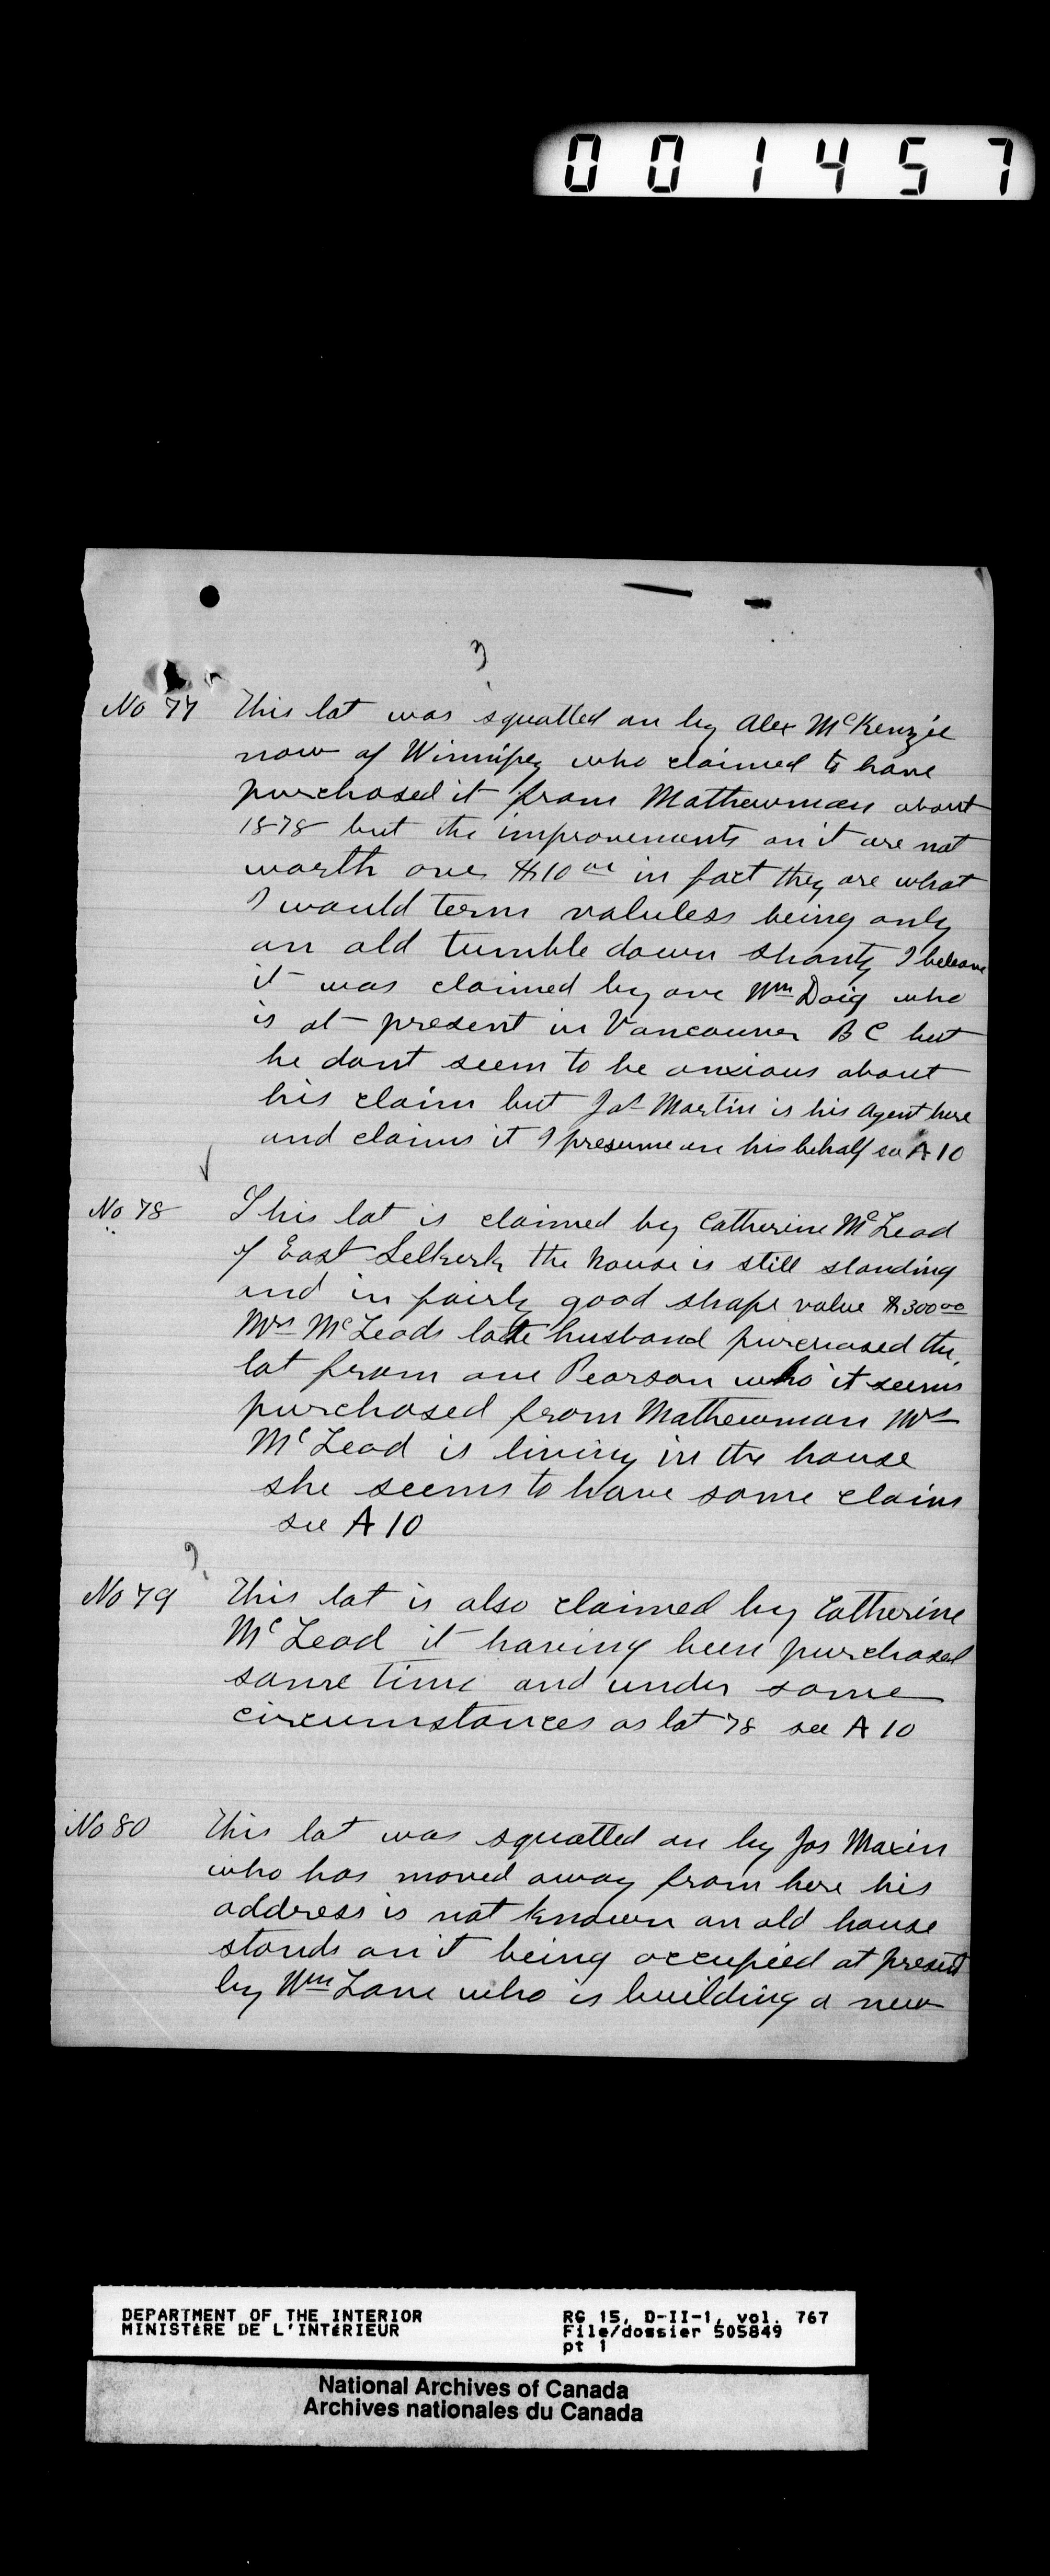 001457
3
No 77 This lot was squatted on by Alex McKenzie
now of Winnipeg who claimed to have
purchased it from Mathewman about
1878 but the improvements on it are not
worth over $10 00 in fact they are what
I would term valuless being only
an old tumble down shanty I beleave
it was claimed by one Wm Doig who
is at present in Vancouver B C but
he dont seem to be anxious about
his claim but Jas Martin is his agent here
and claims it I presume on his behalf see A 10
No 78 This lot is claimed by Catherine McLeod
of East Selkirk the house is still standing
and in fairly good shape value $300 00
Mrs McLeods late husband purchased the
lot from one Pearson who it seems
purchased from Mathewman Mrs
McLeod is living in the house
she seems to have some claim
see A 10
?
No 79 This lot is also claimed by Catherine
McLeod it having been purchased
same time and under same
circumstances as lot 78 see A 10
No 80 This lot was squatted on by Jos Maxin
who has moved away from here his
address is not known an old house
stands on it being occupied at present
by Wm Lane who is building a new
DEPARTMENT OF THE INTERIOR RG 15, D-II-1, vol. 767
MINISTÈRE DE L'INTÉRIEUR File/dossier 505849
pt 1
National Archives of Canada
Archives nationales du Canada